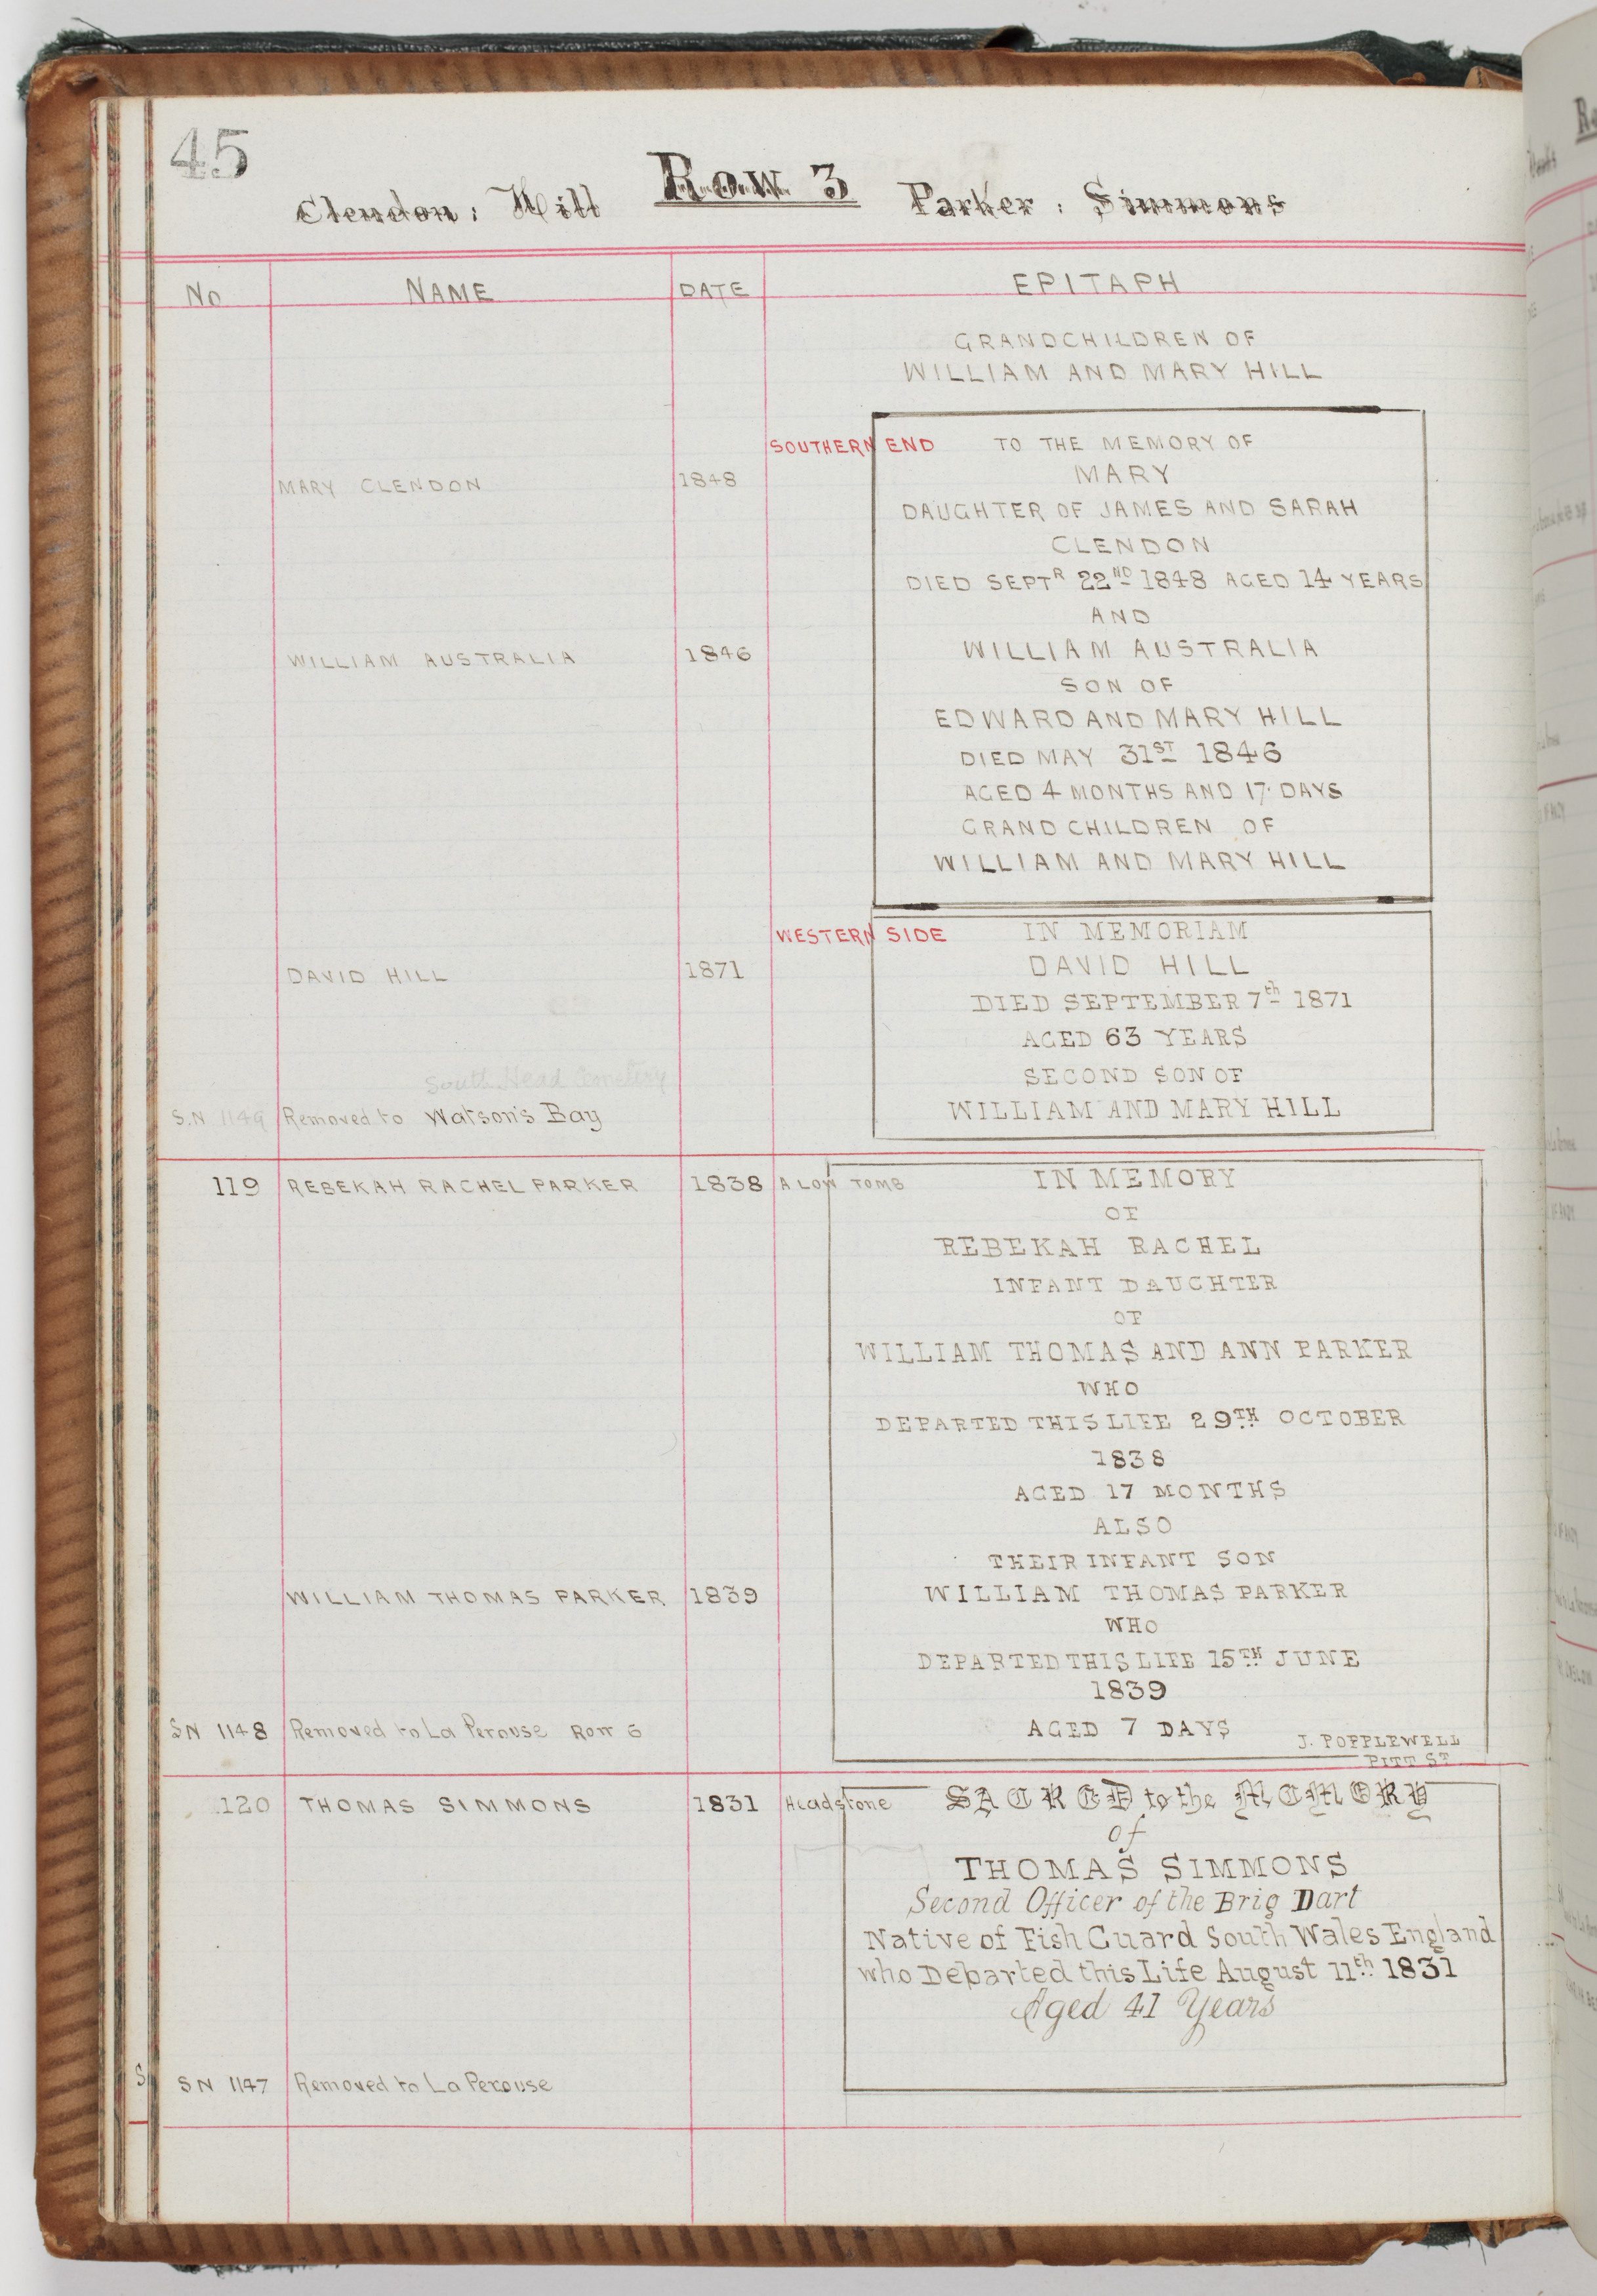 45
Row 3
Clendon : Hill Parker : Simmons
No NAME DATE EPITAPH
GRANDCHILDREN OF
WILLIAM AND MARY HILL
SOUTHERN END TO THE MEMORY OF
MARY CLENDON 1848 MARY
DAUGHTER OF JAMES AND SARAH
CLENDON
DIED SEPTR 22ND 1848 AGED 14 YEARS
AND
WILLIAM AUSTRALIA 1846 WILLIAM AUSTRALIA
SON OF
EDWARD AND MARY HILL
DIED MAY 31ST 1846
AGED 4 MONTHS AND 17 DAYS
GRAND CHILDREN OF
WILLIAM AND MARY HILL
WESTERN SIDE IN MEMORIAM
DAVID HILL 1871 DAVID HILL
DIED SEPTEMBER 7th 1871
AGED 63 YEARS
South Head Cemetery SECOND SON OF
S.N 1149 Removed to Watson's Bay WILLIAM AND MARY HILL
119 REBEKAH RACHEL PARKER 1838 A LOW TOMB IN MEMORY
OF
REBEKAH RACHEL
INFANT DAUGHTER
OF
WILLIAM THOMAS AND ANN PARKER
WHO
DEPARTED THIS LIFE 29TH OCTOBER
1838
AGED 17 MONTHS
ALSO
THEIR INFANT SON
WILLIAM THOMAS PARKER 1839 WILLIAM THOMAS PARKER
WHO
DEPARTED THIS LIFE 15TH JUNE
1839
SN 1148 Removed to La Perouse Row 6 AGED 7 DAYS
J. POPPLEWELL
PITT ST
120 THOMAS SIMMONS 1831 Headstone SACRED to the MEMORY
of
THOMAS SIMMONS
Second Officer of the Brig Dart
Native of Fish Guard South Wales England
who Departed this Life August 11th 1831
Aged 41 Years
SN 1147 Removed to La Perouse